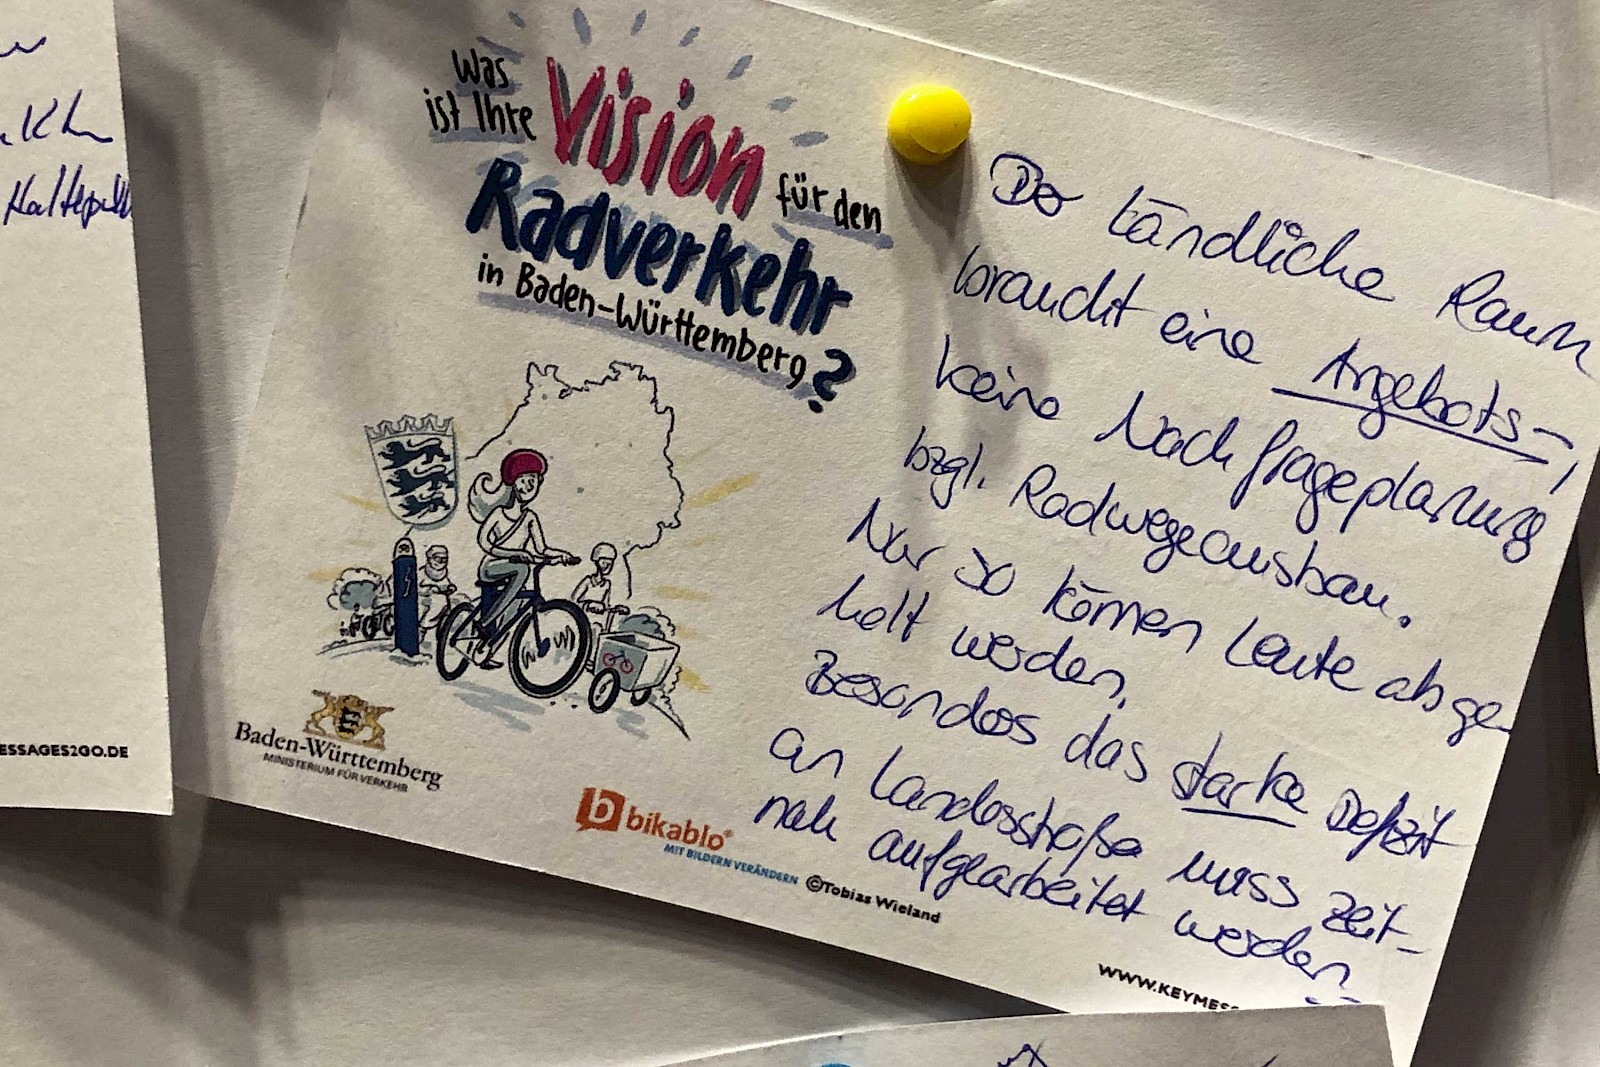 Kh
Haltep
ESSAGES2GO.DE
Was
ist Ihre
Vision
für den
Radverkehr
in Baden-Württemberg?
Baden-Württemberg
MINISTERIUM FÜR VERKEHR
b bikablo®
MIT BILDERN VERÄNDERN
©Tobias Wieland
Der ländliche Raum
braucht eine Angebots-,
keine Nachfrageplanung
bzgl. Radwegeausbau.
Nur so können Leute abge-
holt werden.
Besonders das starke Defizit
an Landesstraße muss zeit-
nah aufgearbeitet werden!
WWW.KEYMES